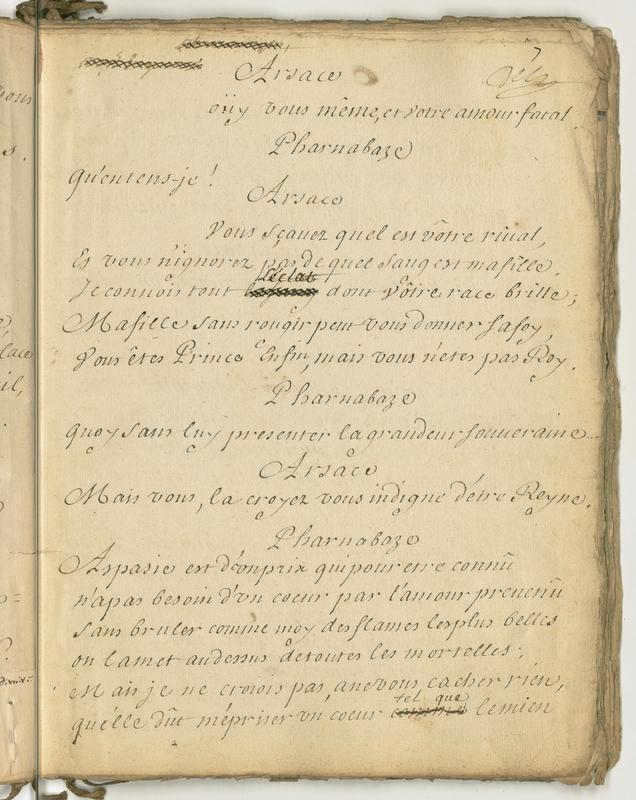 7
Arsace
oüy vous même, et votre amour fatal
Pharnabaze
qu'entens-je !
Arsace
Vous sçauez quel est vôtre riual,
Et vous n'ignorez pas de quel sang est ma fille.
Je connois tout l'éclat dont vôtre race brille ;
Ma fille sans rougir peut vous donner sa foy,
Vous êtes Prince Enfin, mais vous n'etes pas Roy.
Pharnabaze
quoy sans luy presenter la grandeur souueraine...
Arsace
Mais vous, la croyez vous indigne d'étre Reyne.
Pharnabaze
Aspasie est d'vn prix qui pour etre connû
n'a pas besoin d'vn coeur par l'amour preuenû
sans bruler comme moy des flames les plus belles
on la met au dessus de toutes les mortelles ;
Mais je ne croiois pas, a ne vous cacher rien,
qu'élle dût mépriser vn coeur tel que le mien